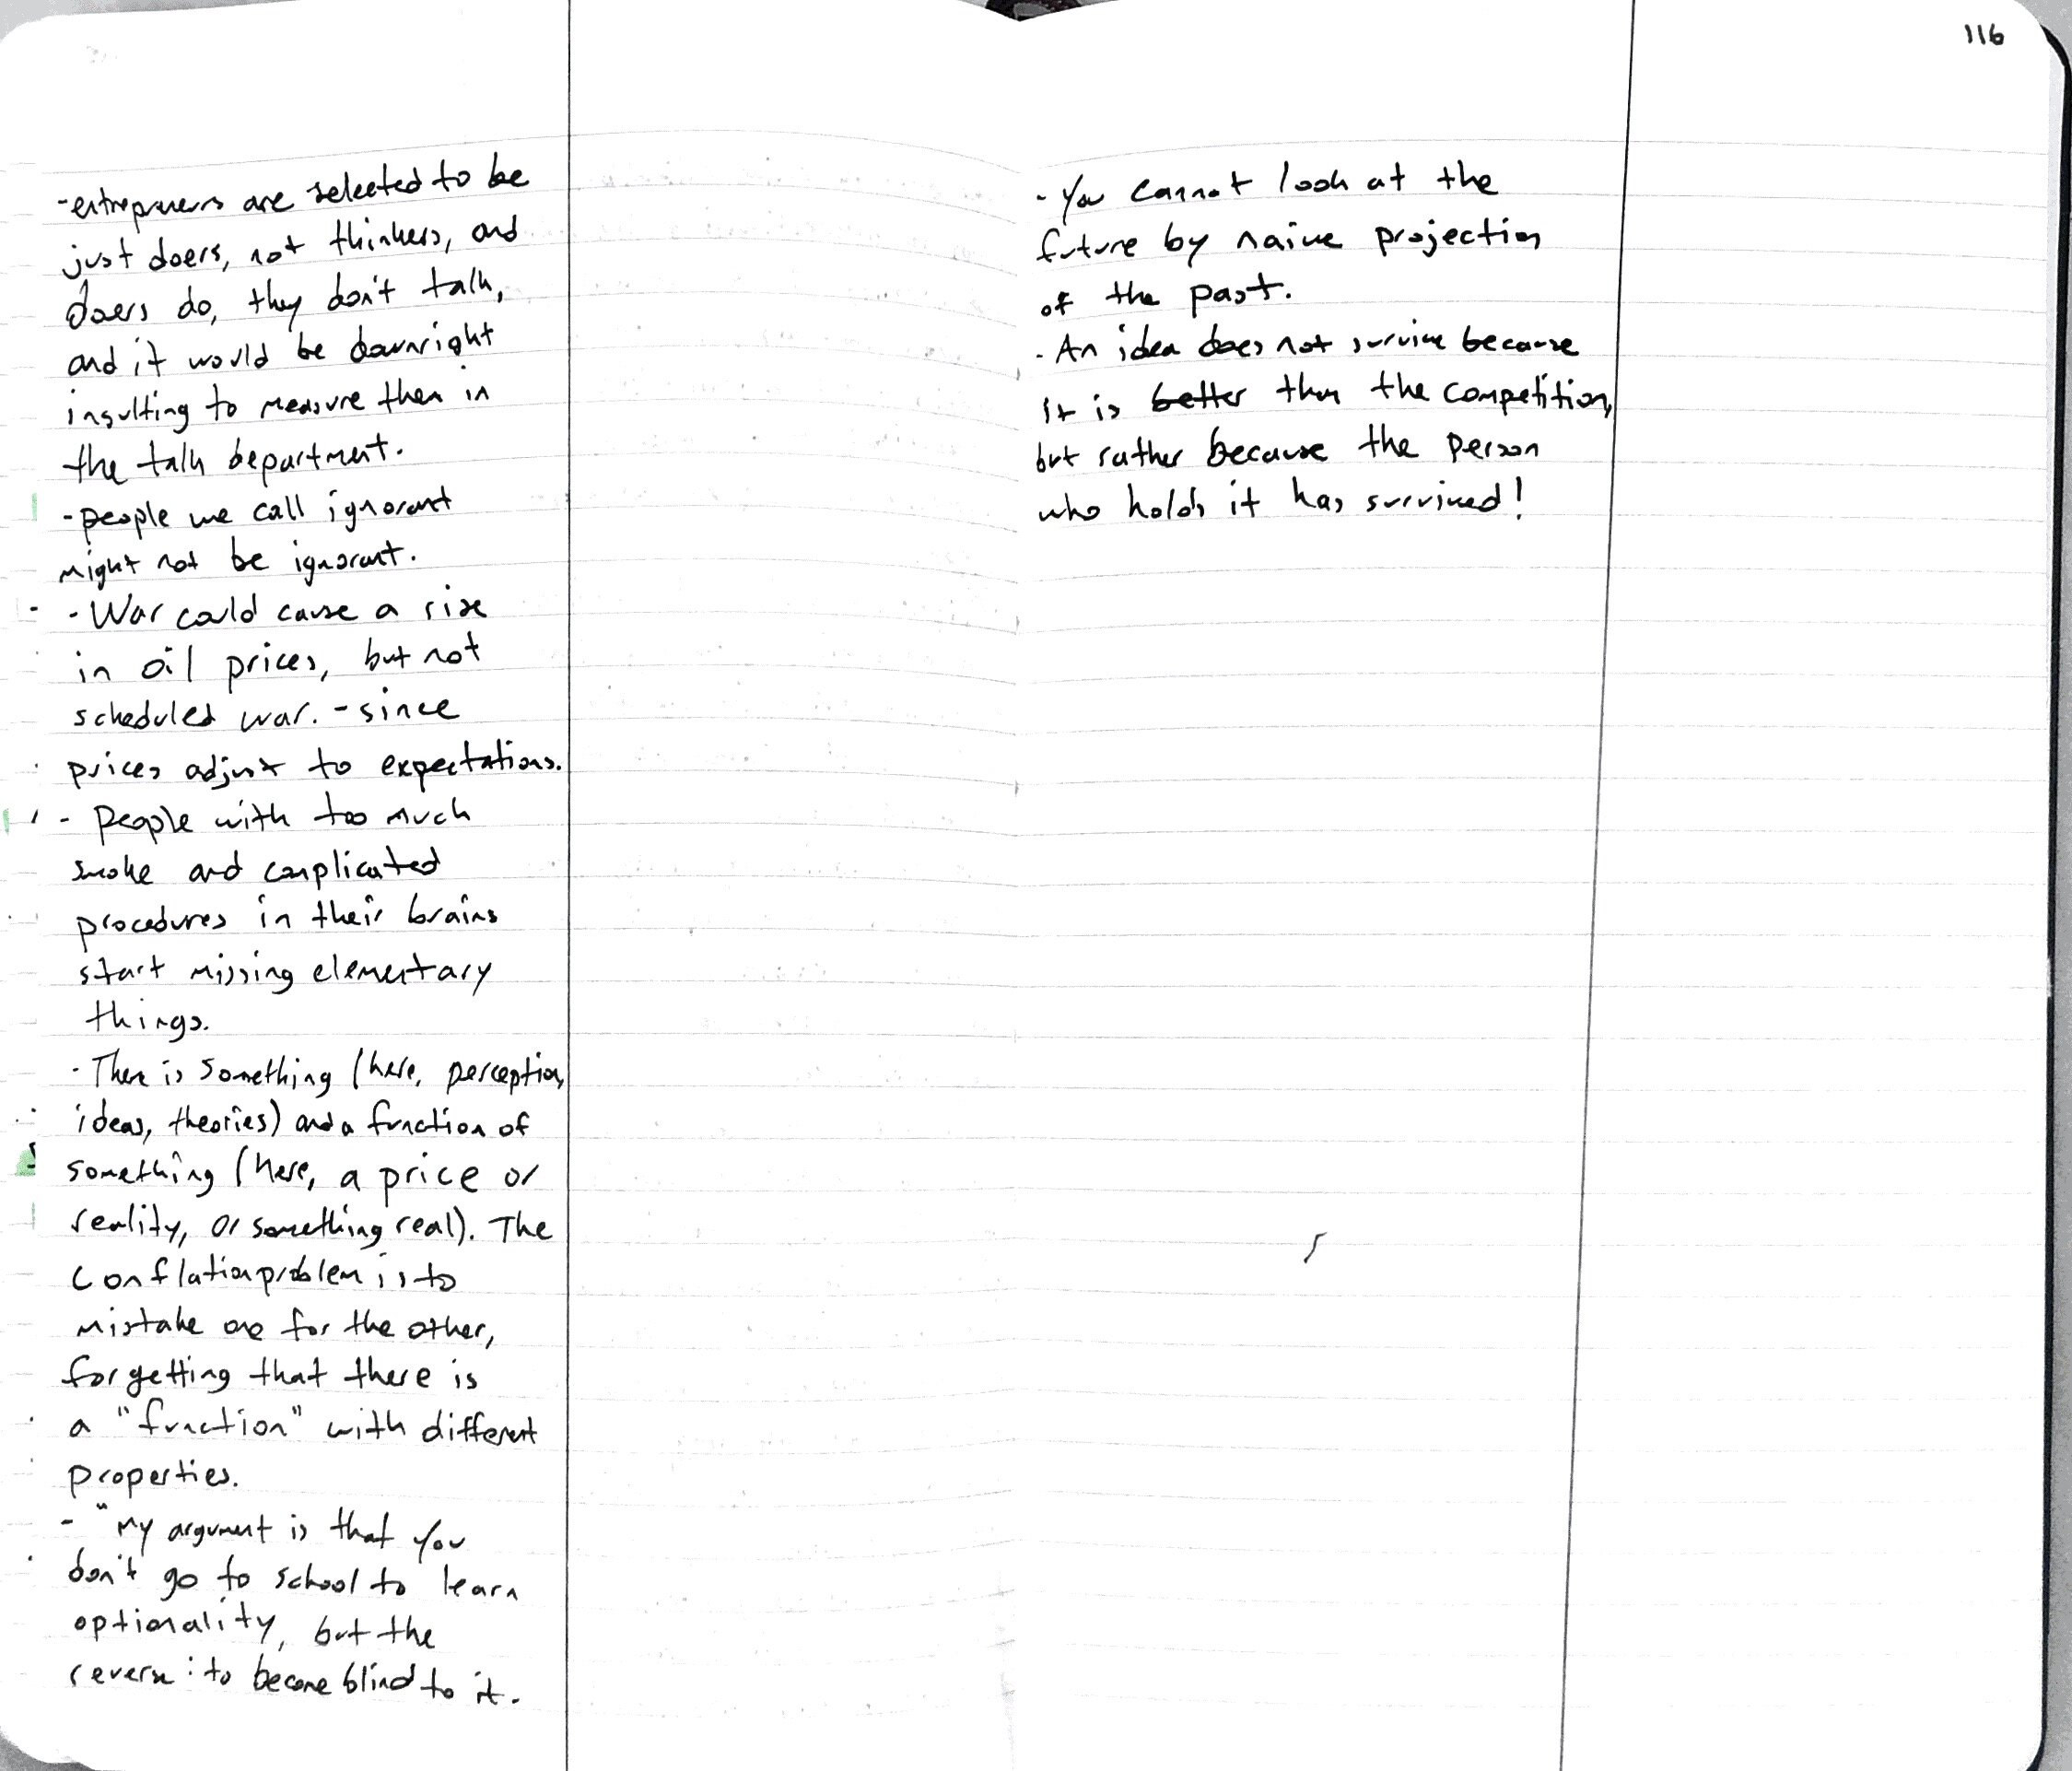 116
-entrepreneurs are selected to be
just doers, not thinkers, and
doers do, they don't talk,
and it would be downright
insulting to measure them in
the talk department.
-people we call ignorant
might not be ignorant.
- War could cause a rise
in oil prices, but not
scheduled war. - since
prices adjust to expectations.
- People with too much
smoke and complicated
procedures in their brains
start missing elementary
things.
- There is something (here, perception,
ideas, theories) and a function of
something (here, a price or
reality, or something real). The
conflation problem is to
mistake one for the other,
forgetting that there is
a "function" with different
properties.
- "My argument is that you
don't go to school to learn
optionality, but the
reverse: to become blind to it.
- You cannot look at the
future by naive projection
of the past.
- An idea does not survive because
it is better than the competition,
but rather because the person
who holds it has survived!